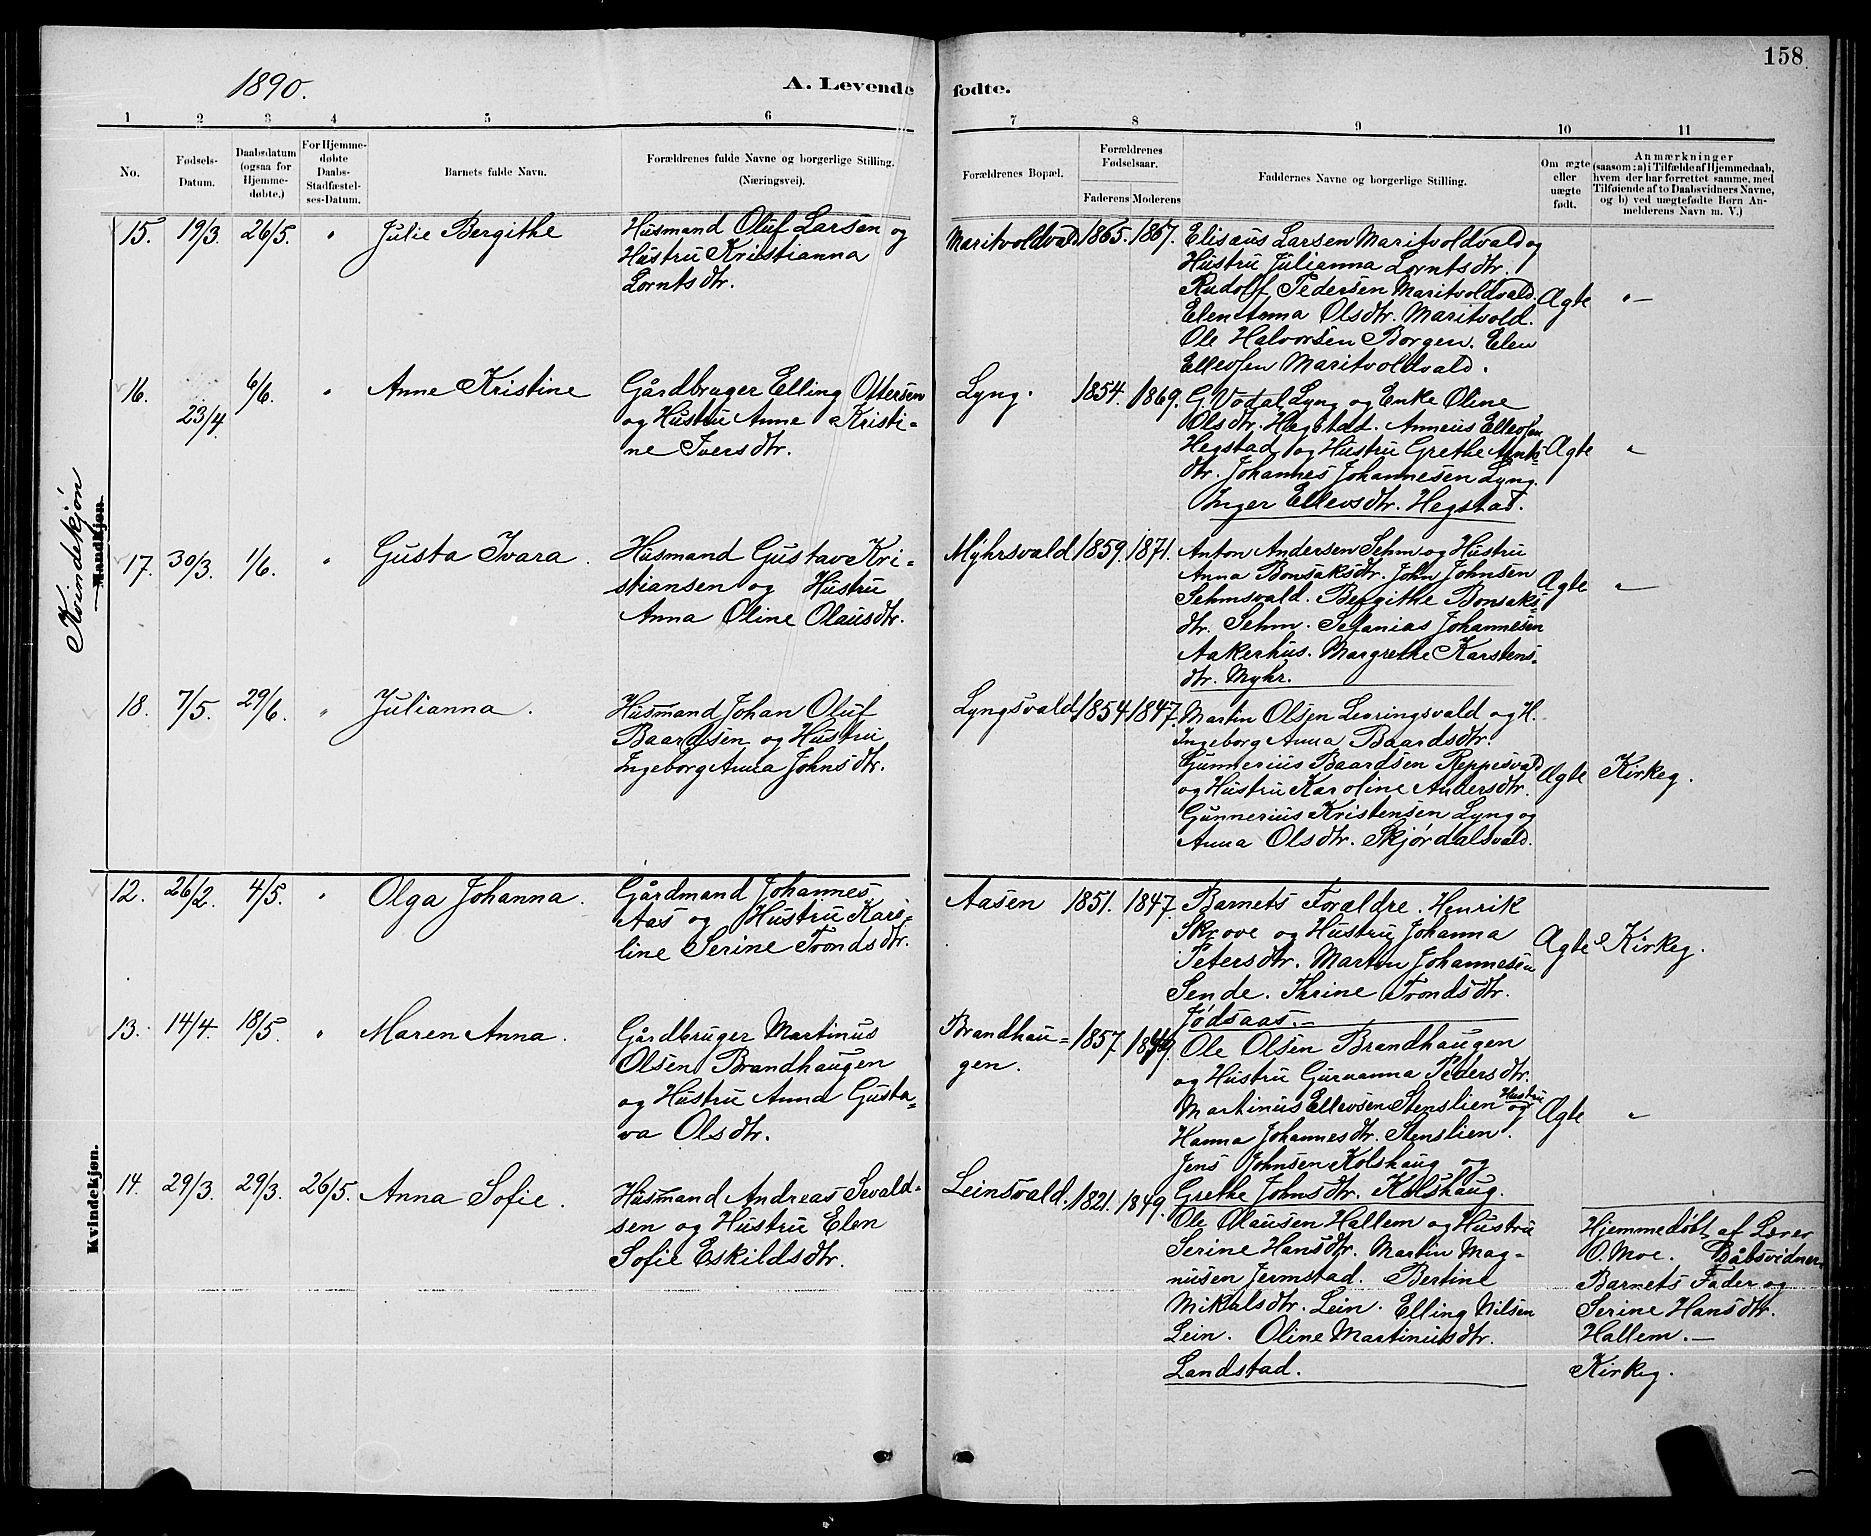 158
1890.
A. Levende fødte.
1 2 3 4 5 6 7 8 9 10 11
No.
Fødsels-
Datum.
Daabsdatum
(ogsaa for
Hjemme-
døbte.)
For Hjemme-
døbte
Daabs-
Stadfæstel-
ses-Datum.
Barnets fulde Navn.
Forældrenes fulde Navne og borgerlige Stilling.
(Næringsvei).
Forældrenes Bopæl.
Forældrenes
Fødselsaar.
Faderens Moderens
Faddernes Navne og borgerlige Stilling.
Om ægte
eller
uægte
født.
Anmærkninger
(saasom: a) i Tilfælde af Hjemmedaab,
hvem der har forrettet samme, med
Tilføiende af to Daabsvidners Navne,
og b) ved uægtefødte Børn An-
melderens Navn m. V.)
Kvindekjøn
Mandkjøn.
15. 19/3. 26/5. " Julie Bergithe
Husmand Oluf Larsen og
Hustru Kristianna
Lorntsdtr.
Maritvoldvald 1865. 1867.
Elisæus Larsen Maritvoldvald og
Hustru Julianna Lorntsdtr.
Rudolf Pedersen Maritvoldvald.
Elen Anna Olsdtr. Maritvold.
Ole Halvorsen Borgen. Elen
Ellevsen Maritvoldvald.
Ægte "
16. 23/4. 6/6. " Anne Kristine
Gårdbruger Elling Ottersen
og Hustru Anne Kristi-
ne Iversdtr.
Lyng. 1854. 1869.
G. Vodal Lyng og Enke Oline
Olsdtr. Hegstad. Anneus Ellevsen
Hegstad og Hustru Grethe
dtr. Johannes Johannesen Lyng.
Inger Ellevsdtr. Hegstad.
Ægte "
17. 30/3. 1/6. " Gusta Ivara.
Husmand Gustav Kri-
stiansen og Hustru
Anna Oline Olausdtr.
Myhrsvald 1859. 1871.
Anton Andersen Sehm og Hustru
Anna Bonsaksdtr. John Johnsen
Sehmsvald. Bergithe Bonsaks-
dtr. Sehm. Sefanias Johannesen
Aakerhus. Margrethe Karstens-
dtr. Myhr.
Ægte "
18. 7/5. 29/6. " Julianna.
Husmand Johan Oluf
Baardsen og Hustru
Ingeborg Anna Johnsdtr.
Lyngsvald 1854 1847.
Martin Olsen Levringsvald og H.
Ingeborg Anna Baardsdtr.
Gunnerius Baardsen Reppesvald
og Hustru Karoline Andersdtr.
Gunnerius Kristensen Lyng og
Anna Olsdtr. Skjørdalsvald.
Ægte Kirkeg.
Kvindekjøn.
12. 26/2. 4/5. " Olga Johanna.
Gårdmand Johannes
Aas og Hustru Karo-
line Serine Trondsdtr.
Aasen 1851. 1847.
Barnets Forældre. Henrik
Skrove og Hustru Johanna
Petersdtr. Martin Johannesen
Sende. Thrine Trondsdtr.
Jødsaas.
Ægte Kirkeg.
13. 14/4. 18/5. " Maren Anna.
Gårdbruger Martinus
Olsen Brandhaugen
og Hustru Anna Gusta-
va Olsdtr.
Brandhau-
gen.
1857.
Ole Olsen Brandhaugen
og Hustru Guruanna Pedersdtr.
Martinus Ellevsen Stenslien og Hustru
Hanna Johannesdtr. Stenslien.
Jens Johnsen Kolshaug og
Grethe Johnsdtr. Kolshaug.
Ægte "
14. 29/3. 29/3. 26/5. Anna Sofie.
Husmand Andreas Sevald-
sen og Hustru Elen
Sofie Eskildsdtr.
Leinsvald. 1821. 1849.
Ole Olausen Hallem og Hustru
Serine Hansdtr. Martin Mag-
nusen Jermstad. Bertine
Mikalsdtr. Lein. Elling Nilsen
Lein. Oline Martinusdtr.
Landstad.
Hjemmedøbt af Lærer
O. Moe. Dåbsvidner
Barnets Fader og
Serine Hansdtr.
Hallem.
Kirkeg.